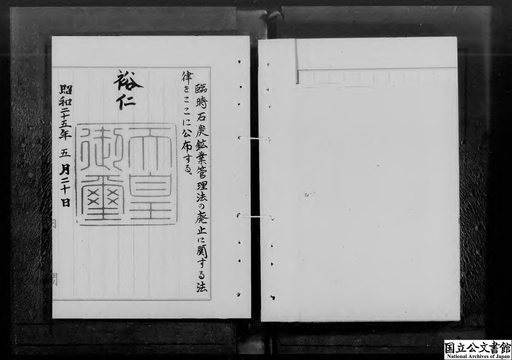 臨時石炭鉱業管理法の廃止に関する法
律をここに公布する。
裕仁
天皇
御璽
昭和二十五年五月二十日
国立公文書館
National Archives of Japan